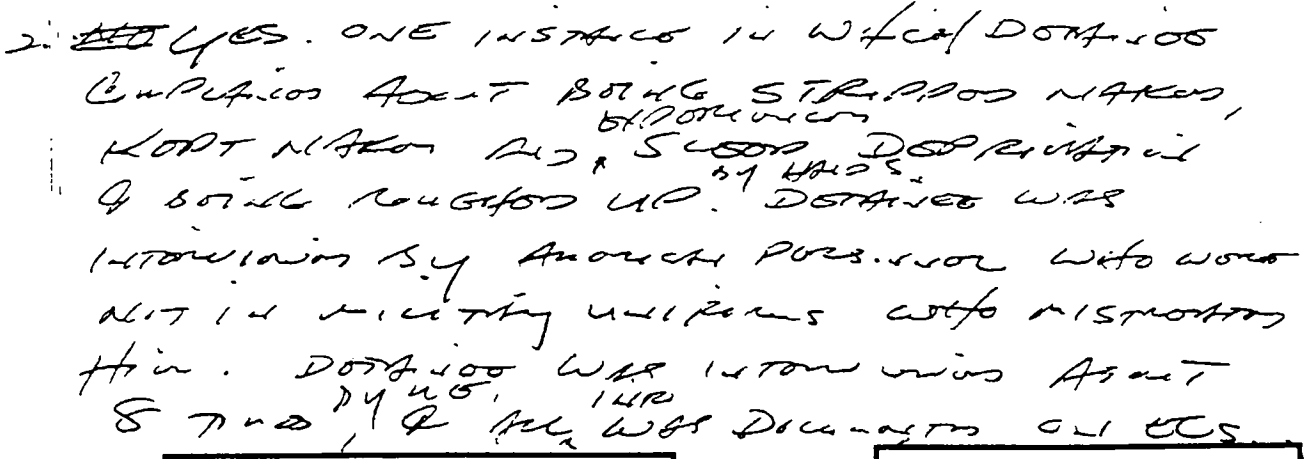 2. YES. ONE INSTANCE IN WHICH DETAINEE
COMPLAINED ABOUT BEING STRIPPED NAKED,
KEPT NAKED AND EXPERIENCING SLEEP DEPRIVATION
& BEING ROUGHED UP BY HANDS. DETAINEE WAS
INTERVIEWED BY AMERICAN PERSONNEL WHO WERE
NOT IN MILITARY UNIFORMS WHO MISTREATED
HIM. DETAINEE WAS INTERVIEWED ABOUT
8 TIMES BY ME, & ALL INFO WAS DOCUMENTED ON ECS.